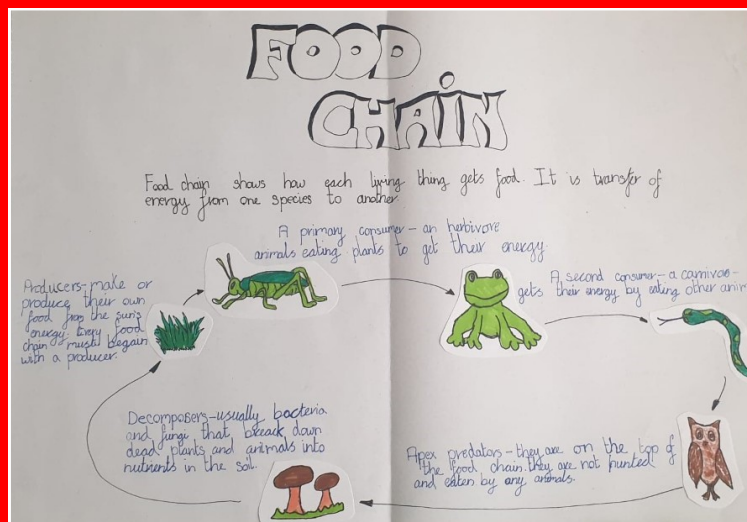 FOOD
CHAIN
Food chain shows how each living thing gets food. It is transfer of
energy from one species to another.
A primary consumer - an herbivore
animals eating plants to get their energy
Producers - make or
produce their own
food from the sun's
energy. Every food
chain must begain
with a producer.
A second consumer - a carnivoe -
gets their energy by eating other anim
Decomposers - usually bacteria
and fungi that breack down
dead plants and animals into
nutrients in the soil.
Apex predators - they are on the top of
the food chain. they are not hunted
and eaten by any animals.